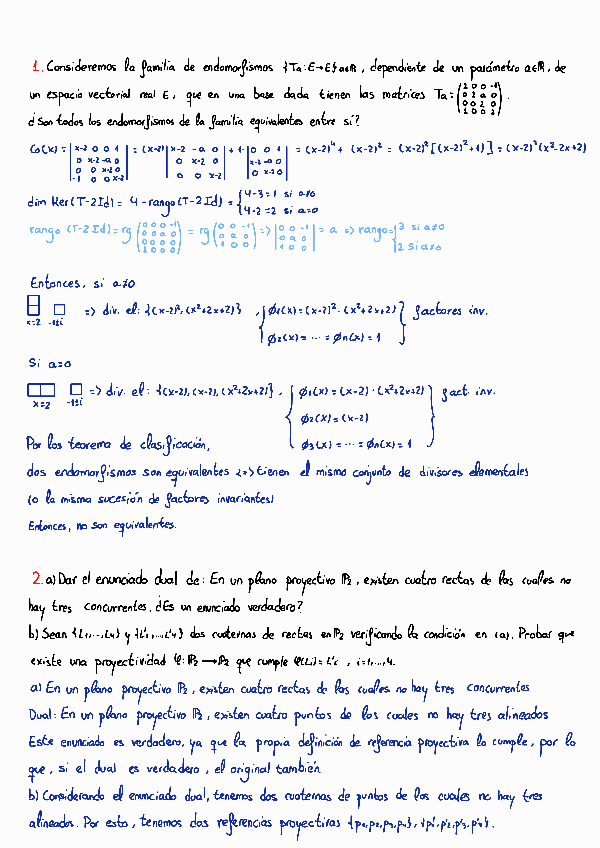 1. Consideremos la familia de endomorfismos {Ta: E→E} a∈ℝ, dependiente de un parámetro a∈ℝ, de
un espacio vectorial real E, que en una base dada tienen las matrices Ta = (2 0 0 -1 / 0 2 a 0 / 0 0 2 0 / 1 0 0 2).
¿Son todos los endomorfismos de la familia equivalentes entre sí?
C_T(x) = |x-2 0 0 1 / 0 x-2 -a 0 / 0 0 x-2 0 / -1 0 0 x-2| = (x-2)|x-2 -a 0 / 0 x-2 0 / 0 0 x-2| + 1·|0 0 1 / x-2 -a 0 / 0 x-2 0| = (x-2)⁴ + (x-2)² = (x-2)²[(x-2)²+1)] = (x-2)²(x²-2x+2)
dim Ker(T-2Id) = 4 - rango(T-2Id) = {4-3=1 si a≠0
4-2=2 si a=0
rango (T-2Id) = rg (0 0 0 -1 / 0 0 a 0 / 0 0 0 0 / 1 0 0 0) = rg (0 0 -1 / 0 a 0 / 1 0 0) => |0 0 -1 / 0 a 0 / 1 0 0| = a => rango = {3 si a≠0
2 si a=0
Entonces, si a≠0
=> div. el: {(x-2)², (x²+2x+2)}, {φ₁(x) = (x-2)²·(x²+2x+2) } factores inv.
x=2 -1±i
φ₂(x) = ... = φn(x) = 1
Si a=0
=> div. el: {(x-2), (x-2), (x²+2x+2)}, {φ₁(x) = (x-2)·(x²+2x+2) } fact. inv.
x=2 -1±i
φ₂(x) = (x-2)
Por los teorema de clasificación, φ₃(x) = ... = φn(x) = 1
dos endomorfismos son equivalentes <=> tienen el mismo conjunto de divisores elementales
(o la misma sucesión de factores invariantes)
Entonces, no son equivalentes.
2. a) Dar el enunciado dual de: En un plano proyectivo ℙ₂, existen cuatro rectas de las cuales no
hay tres concurrentes. ¿Es un enunciado verdadero?
b) Sean {L₁,...,L₄} y {L'₁,...,L'₄} dos cuaternas de rectas en ℙ₂ verificando la condición en (a). Probar que
existe una proyectividad φ: ℙ₂ → ℙ₂ que cumple φ(Li) = L'i, i=1,...,4.
a) En un plano proyectivo ℙ₂, existen cuatro rectas de las cuales no hay tres concurrentes
Dual: En un plano proyectivo ℙ₂, existen cuatro puntos de los cuales no hay tres alineados
Este enunciado es verdadero, ya que la propia definición de referencia proyectiva lo cumple, por lo
que, si el dual es verdadero, el original también
b) Considerando el enunciado dual, tenemos dos cuaternas de puntos de los cuales no hay tres
alineados. Por esto, tenemos dos referencias proyectivas {p₁,p₂,p₃,p₄}, {p'₁,p'₂,p'₃,p'₄}.